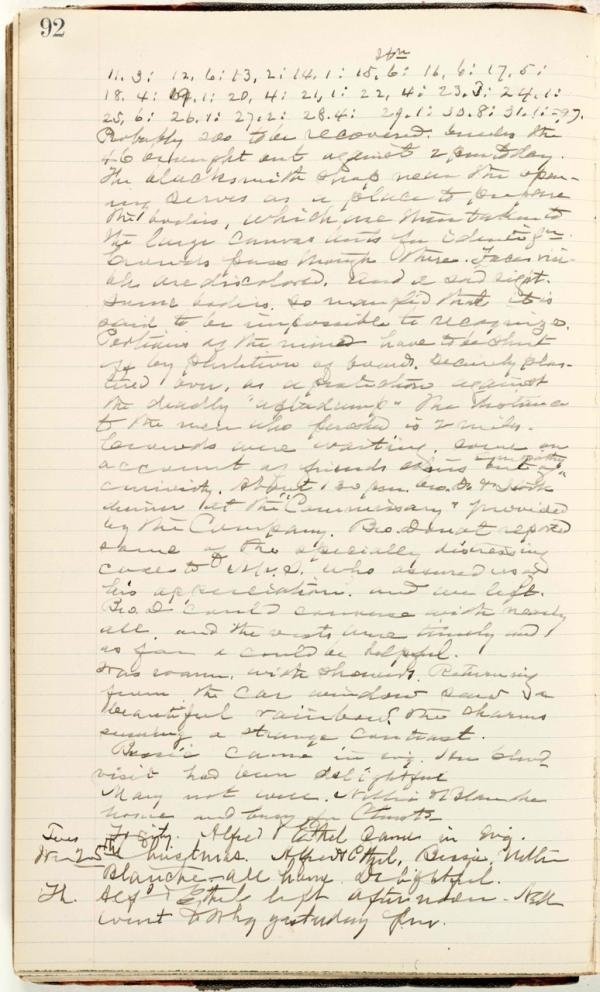 92
11. 3: 12, 6: 13, 2: 14, 1: 15, 6: 16, 6: 17, 5:
18. 4: 19, 1: 20, 4: 21, 1: 22, 4: 23. 3: 24. 1:
25, 6: 26. 1: 27. 2: 28. 4: 29. 1: 30. 8: 31. 1: = 97.
Probably 200 to be recovered. under the
46 brought out against 2 pm today.
The blacksmith shop near the open-
ing serves as a place to prepare
the bodies, which are then taken to
the large canvas tents for identifn.
Crowds pass through there. Faces
are discolored, and a sad sight.
Some bodies so mangled that it is
said to be impossible to recognize.
Portions of the mines have to be shut
off by partition of boards, securely plas-
tered over, as a protection against
the deadly "afterdamp" The distance
to the men who perished is 2 miles.
Crowds were waiting, some on
account of friends others sympathy
curiosity. About 1 30 pm. Bro. D. & I took
dinner at the "Commissary" provided
by the Company. Bro. Donat reported
some of the specially distressing
cases to who assured us of
his appreciation. and we left.
Bro. D could converse with nearly
all, and the visits were timely and
as far as could be helpful.
Was warm, with showers. Returning
from the car window saw a
beautiful rainbow. the charms
seeming a strange contrast.
Bessie came in evg. Her
visit had been delightful
Mary not well. Nellie & Blanche
home and busy for Christs
Tues To city. Alfred & Ethel came in Evg.
Wed 25th Christmas. Alfred & Ethel, Bessie, Nellie
Blanche - all home. Delightful.
Th. Alfd & Ethel left afternoon. Nell
went to yesterday pm.